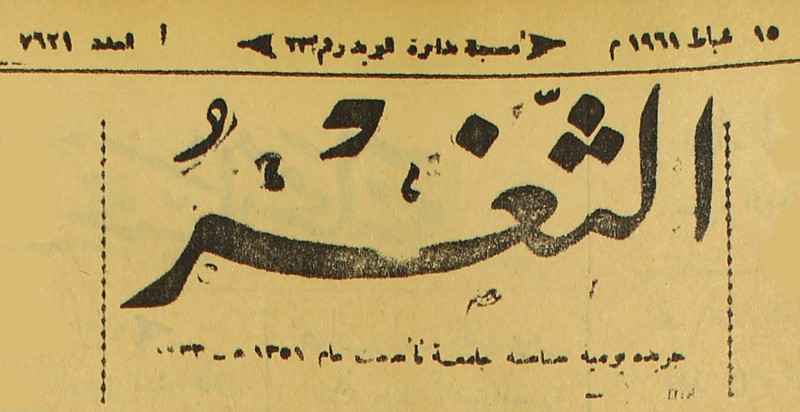 ١٥ شباط ١٩٦١ م مسجلة بدائرة البريد رقم ٢٣ العدد ٧٦٢١
الثغر
جريدة يومية سياسية جامعة تأسست عام ١٣٥١ هـ - ١٩٣٣